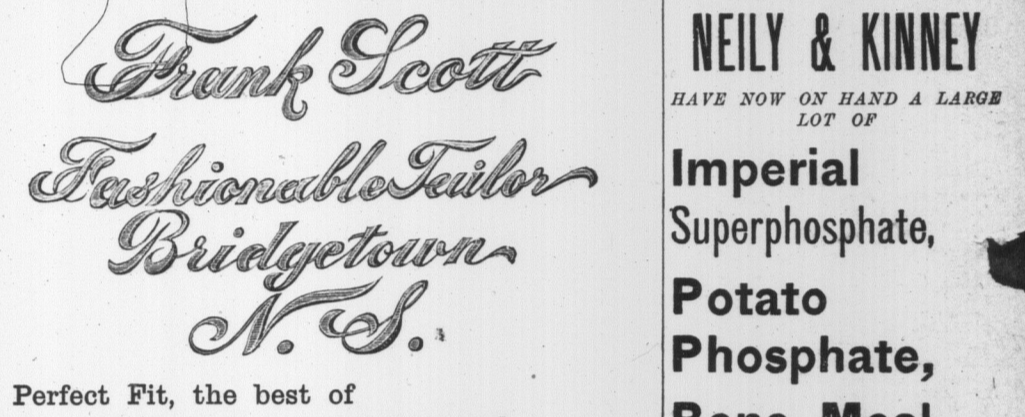 Frank Scott
Fashionable Tailor
Bridgetown
N. S.
Perfect Fit, the best of
NEILY & KINNEY
HAVE NOW ON HAND A LARGE
LOT OF
Imperial
Superphosphate,
Potato
Phosphate,
Bone Meal